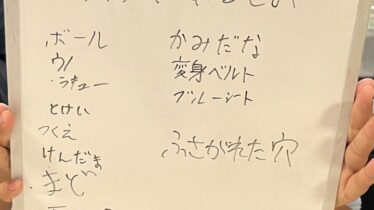 ボール
ウノ
とけい
つくえ
けんだま
まど
かみだな
変身ベルト
ブルーシート
ふさがれた穴